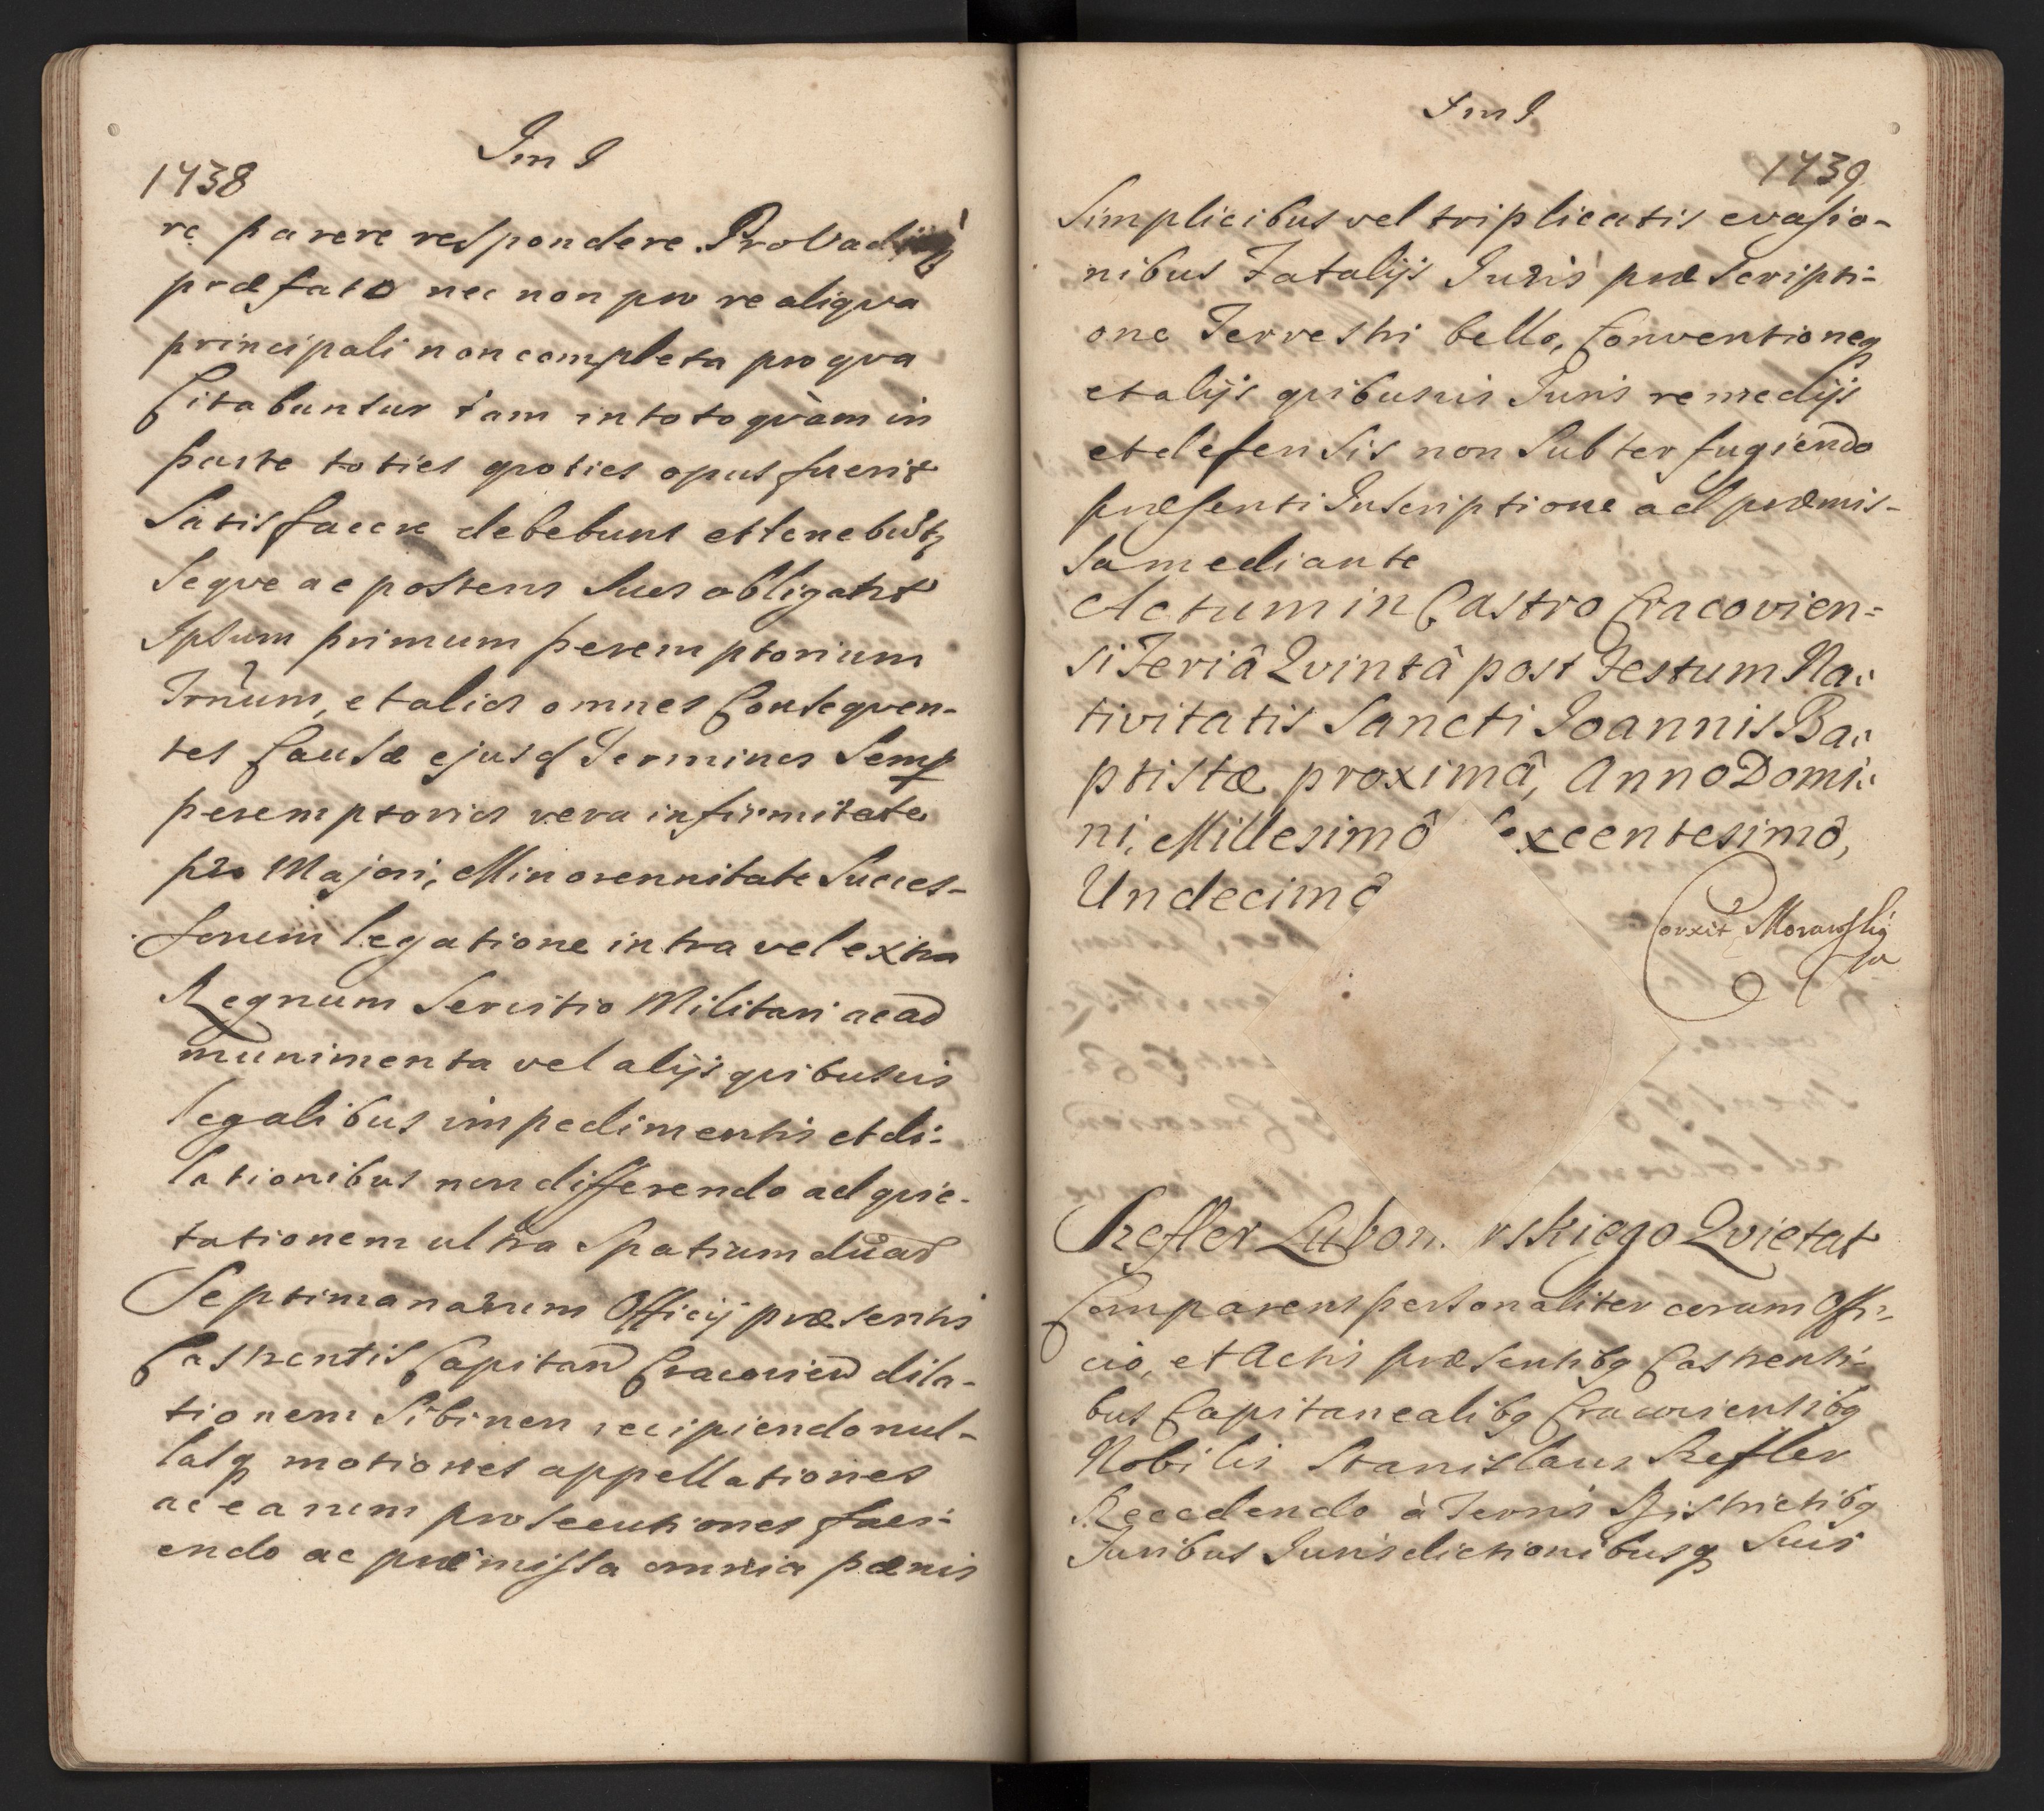 Im J
1438
re parere respondere Pro Vadijq
præfato nec non pro re aliqva
principali non completa pro qva
Citabuntur tam in toto qvàm in
parte toties qvoties opus fuerit
Satisfacere debebunt et tenebūtq
Seqve ac posteros Suos obligant
Ipsum primum peremptorium
Trmũm, et alios omnes Conseqven-
tes Causæ ejusd Terminos Semp
peremptorios vera infirmitate
pro Majori, Minorennitate Succes-
sorum legatione intra vel extra
Regnum Servitio Militari ac ad
munimenta vel alijs qvibusvis
legalibus impedimentis et di-
lationibus non differendo ad qvie-
tationem ultra Spatium duar
Septimanarum Officij præsentis
Castrentis Capitan Cracovien dila-
tionem Sibi nen recipiendo nul-
lasq motiones appellationes
ac earum prosecutiones faci-
endo ac præmissa omnia pænis
Im J
1439
Simplicibus vel triplicatis evasio-
nibus Fatalijs Juris præscripti-
one Terrestri bello, Conventioneq
et alijs qvibusvis Juris remedijs
et defensis non Subterfugiendo
præsenti Inscriptione ad præmis-
sa mediante
Actum in Castro Cracovien-
si Feriâ Qvintâ post Festum Na-
tivitatis Sancti Joannis Ba-
ptistæ proximâ, Anno Domi-
ni, Millesimô excentesimô,
Undecimô
Corxit Morawski
Szefler Lubom rskiego Qvietat
Comparens personaliter coram Offi-
cio, et Actis præsentibq Castrenti-
bus Capitanealibq Cracoviensibq
Nobilis Stanislaus Szefler
Recedendo à Terris Districtibq
Juribus Jurisdictionibusq Suis